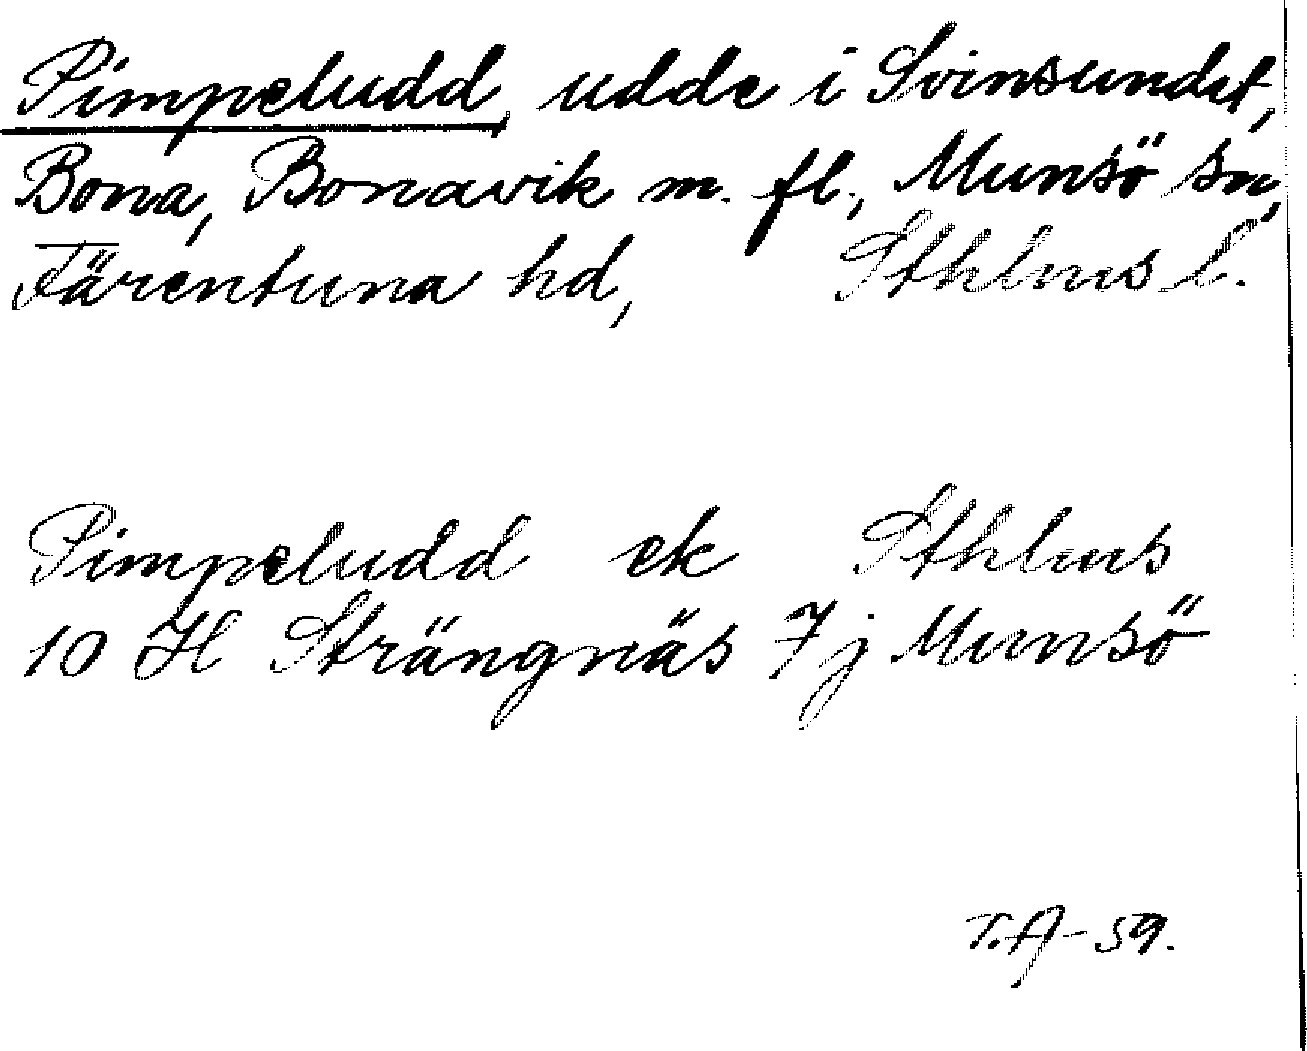 Pimpeludd, udde i Svinsundet,
Bona, Bonavik m. fl., Munsö sn,
Färentuna hd, Sthlms l.
Pimpeludd ek Sthlms
10 H Strängnäs 7j Munsö
T.A-59.